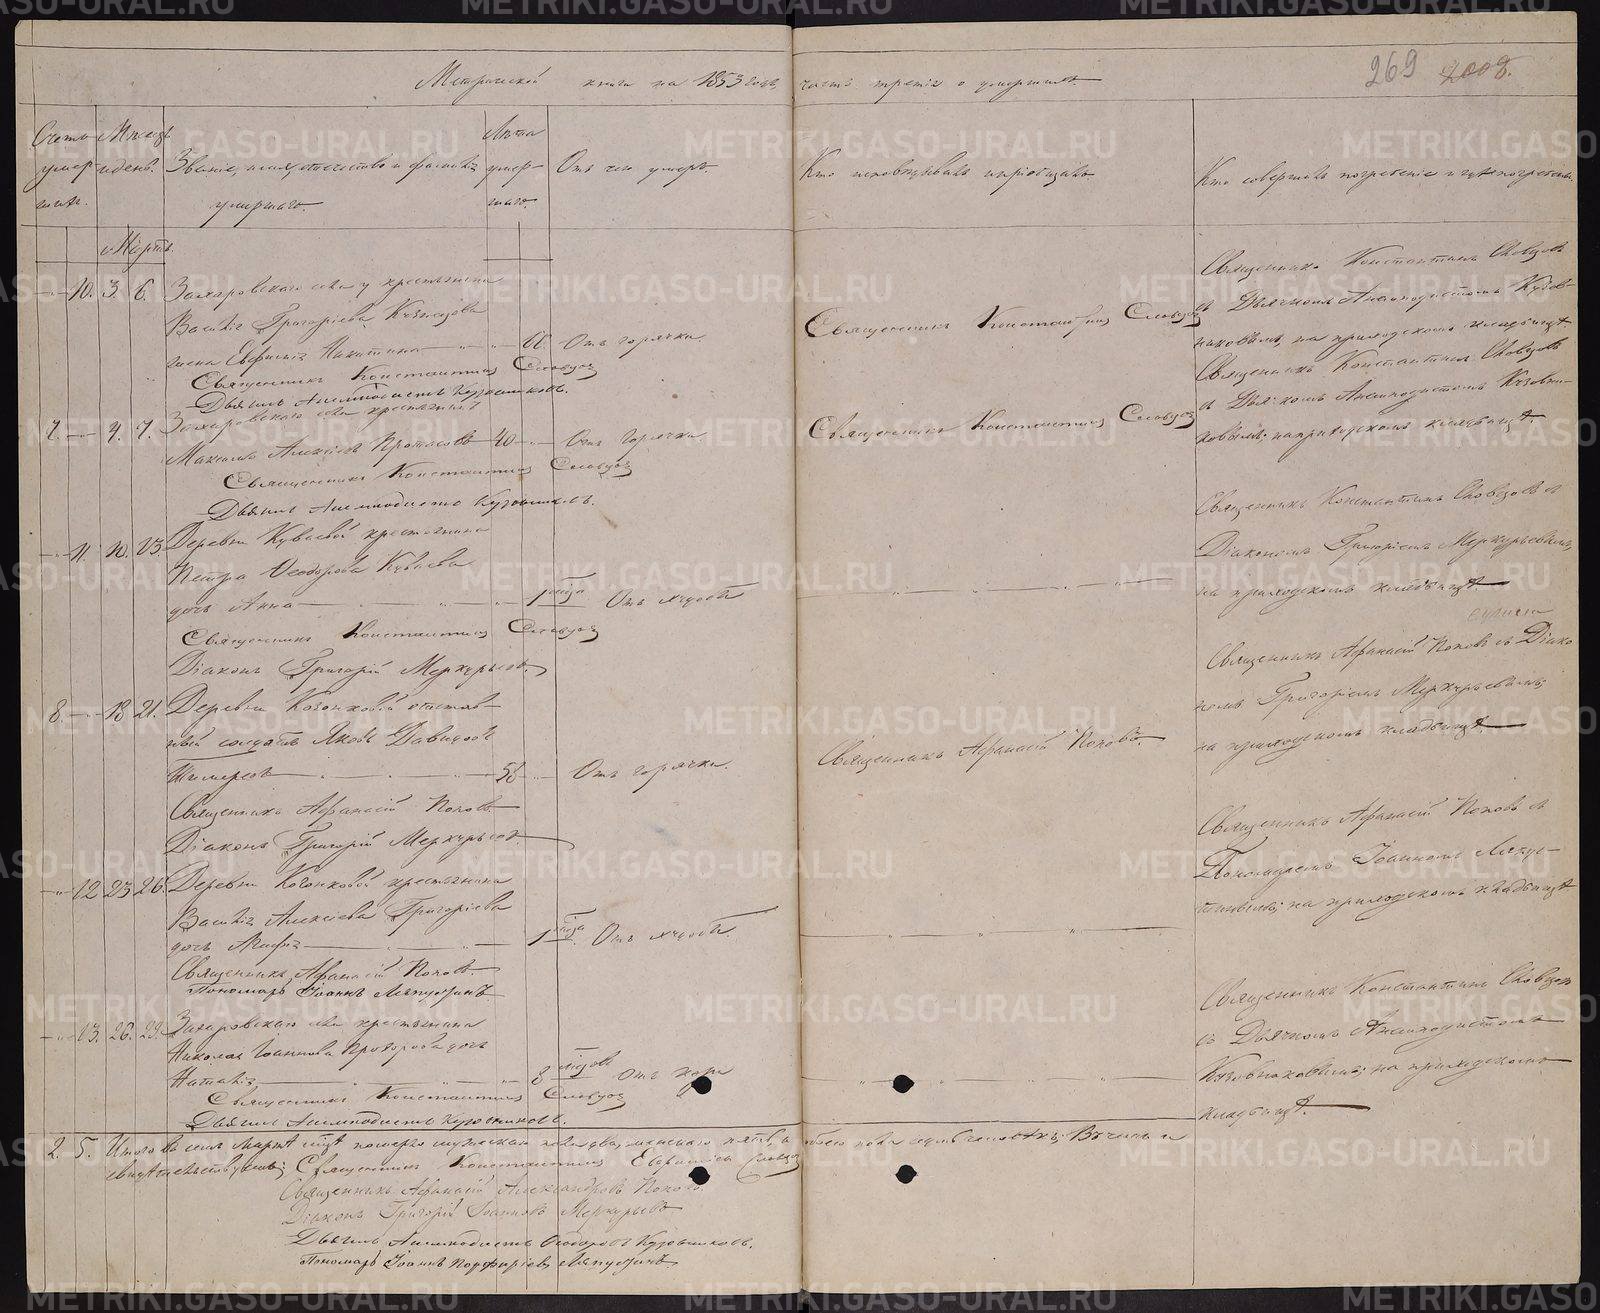 Метрической книги на 1853 годъ, часть третія о умершихъ.
269 2008.
Счетъ умер-шихъ.
Мѣсяцъ и день.
Званіе, имя, отчество и фамилія умершаго.
Лѣта умер-шаго.
Отъ чего умеръ.
Кто исповѣдывалъ и пріобщалъ
Кто совершалъ погребеніе и гдѣ погребены.
Мартъ.
10. 3. 6. Захаровскаго села крестьянина
Василія Григорьева
жена Евфимія Никитина 60 Отъ горячки.
Священникъ Константинъ Словцов
Дьячекъ Анемподистъ Кузовниковъ.
Священникъ Константинъ Словцов
Священникъ Константинъ Словцовъ
съ Дьячкомъ Анемподистомъ Кузов-
никовымъ, на приходскомъ кладбищѣ
7. 4. 7. Захаровскаго села крестьянинъ
Максимъ Алексѣевъ Протасовъ 40 Отъ горячки.
Священникъ Константинъ Словцов
Дьячекъ Анемподистъ Кузовниковъ.
Священникъ Константинъ Словцов
Священникъ Константинъ Словцовъ
съ Дьячкомъ Анемподистомъ Кузовни-
ковымъ, на приходскомъ кладбищѣ.
11. 10. 13. Деревни Куваевой крестьянина
Петра Ѳеодорова Куваева
дочь Анна 1 года Отъ худобы
Священникъ Константинъ Словцов
Діаконъ Григорій Меркурьевъ.
Священникъ Константинъ Словцовъ съ
Діакономъ Григоріемъ Меркурьевымъ,
на приходскомъ кладбищѣ
8. 18. 21. Деревни отстав-
ный солдатъ Яковъ Давидовъ
58 Отъ горячки.
Священникъ Афанасій Поповъ.
Діаконъ Григорій Меркурьевъ
Священникъ Афанасій Поповъ.
Священникъ Афанасій Поповъ съ Діако
номъ Григоріемъ Меркурьевымъ,
на приходскомъ кладбищѣ.
12 23 26. Деревни крестьянина
Василія Алексѣева Григорьева
дочь 1 года. Отъ худобы.
Священникъ Афанасій Поповъ.
Пономарь Іоаннъ Ляпустинъ
Священникъ Афанасій Поповъ съ
Пономаремъ Іоанномъ Ляпус-
тинымъ, на приходскомъ кладбищѣ
13. 26. 29. Захаровскаго села крестьянина
Николая Іоаннова дочь
Наталія 8 годовъ Отъ кори
Священникъ Константинъ Словцов
Дьячекъ Анемподистъ Кузовниковъ.
Священникъ Константинъ Словцовъ
съ Дьячкомъ Анемподистомъ
Кузовниковымъ, на приходскомъ
кладбищѣ.
2. 5. Итого въ семъ Мартѣ мцѣ померло мужеска пола два, женскаго пять, а обоего пола семь человѣкъ; Въ чемъ и
свидѣтельствуемъ; Священникъ Константинъ Словцов
Священникъ Афанасій Александровъ Поповъ.
Діаконъ Григорій Іоанновъ Меркурьевъ.
Дьячекъ Анемподистъ Ѳеодоровъ Кузовниковъ.
Пономарь Іоаннъ Порфирьевъ Ляпустинъ
METRIKI.GASO-URAL.RU